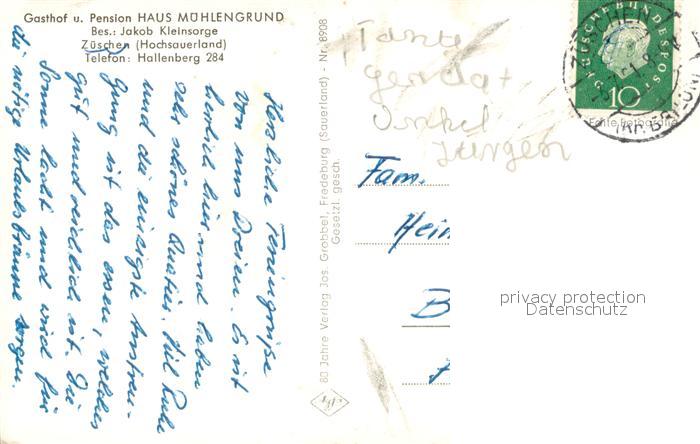 Gasthof u. Pension HAUS MÜHLENGRUND
Bes.: Jakob Kleinsorge
Züschen (Hochsauerland)
Telefon: Hallenberg 284
Herzliche Feriengrüße
von uns Dreien. Es ist
herrlich hier und haben
sehr schönes Quatier. Viel Ruhe
und die einzigste Anstren-
gung ist das essen, welches
gut und reichlich ist. Die
Sonne lacht und wird für
die nötige Urlaubsbräune sorgen.
80 Jahre Verlag Jos. Grobbel, Fredeburg (Sauerland) - Nr. 8908
Gesetzl. gesch.
Tante
Gerda +
Onkel
Jürgen
Fam.
Hein
B
DEUTSCHE BUNDESPOST
10
Echte Fotografie
privacy protection
Datenschutz